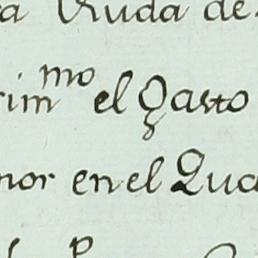 a Viuda de
rim^mo el Gasto
nor en el Qua